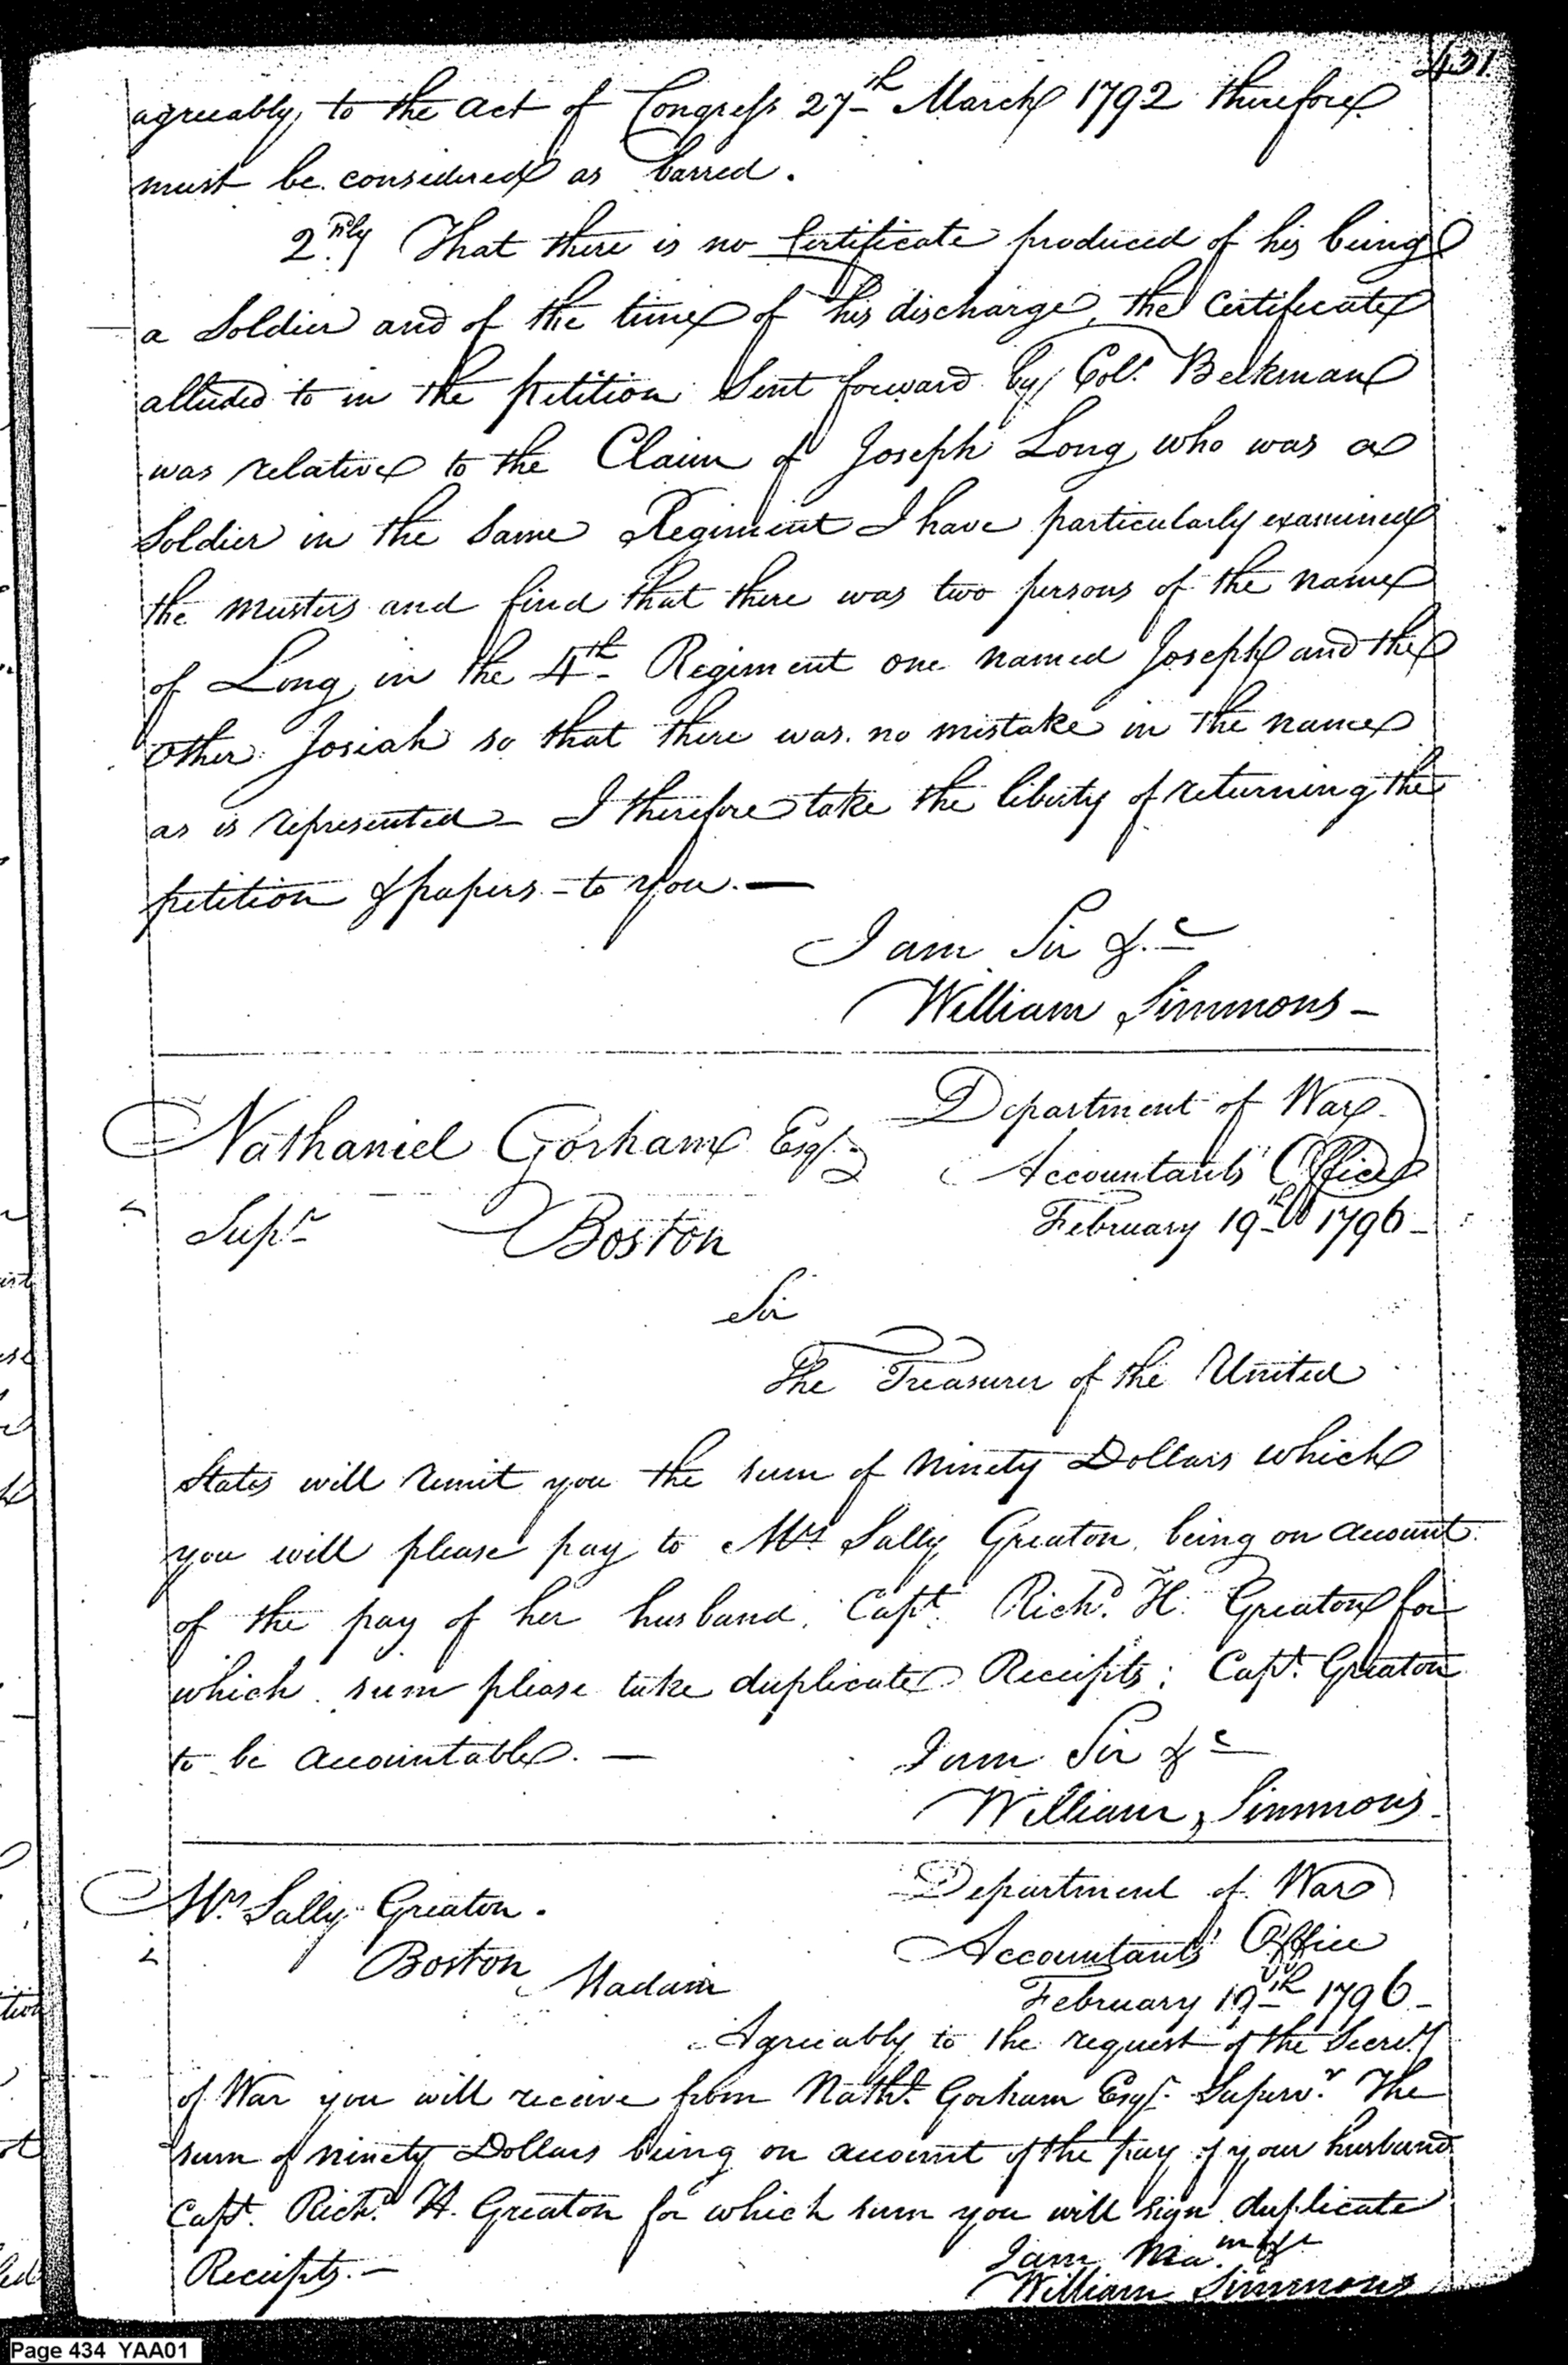 431.
agreeably to the act of Congress 27th March 1792 therefore
must be considered as barred.
2ndly That there is no Certificate produced of his being
a Soldier and of the time of his discharge, the Certificate
alluded to in the petition Sent forward by Col. Beekman
was relative to the Claim of Joseph Long who was a
Soldier in the Same Regiment I have particularly examined
the musters and find that there was two persons of the name
of Long in the 4th Regiment one named Joseph and the
other Josiah so that there was no mistake in the name
as is represented - I therefore take the liberty of returning the
petition & papers - to you. —
I am Sir &c
William Simmons -
Nathaniel Gorham Esqr.
Supr. Boston
Department of War
Accountants Office
February 19th 1796 -
Sir
The Treasurer of the United
States will remit you the sum of Ninety Dollars which
you will please pay to Mrs Sally Greaton, being on account
of the pay of her husband, Capt. Richd. H. Greaton for
which sum please take duplicate Receipts; Capt. Greaton
to be accountable. —
I am Sir &c
William Simmons.
Mrs Sally Greaton.
Boston
Department of War
Accountants' Office
February 19th 1796 -
Madam
Agreeably to the request of the Secrey
of War you will receive from Nathl. Gorham Esqr. Superv.r The
sum of ninety Dollars being on account of the pay of your husband
Capt. Richd. H. Greaton for which sum you will sign duplicate
Receipts. -
I am Ma.m &c
William Simmons
Page 434 YAA01